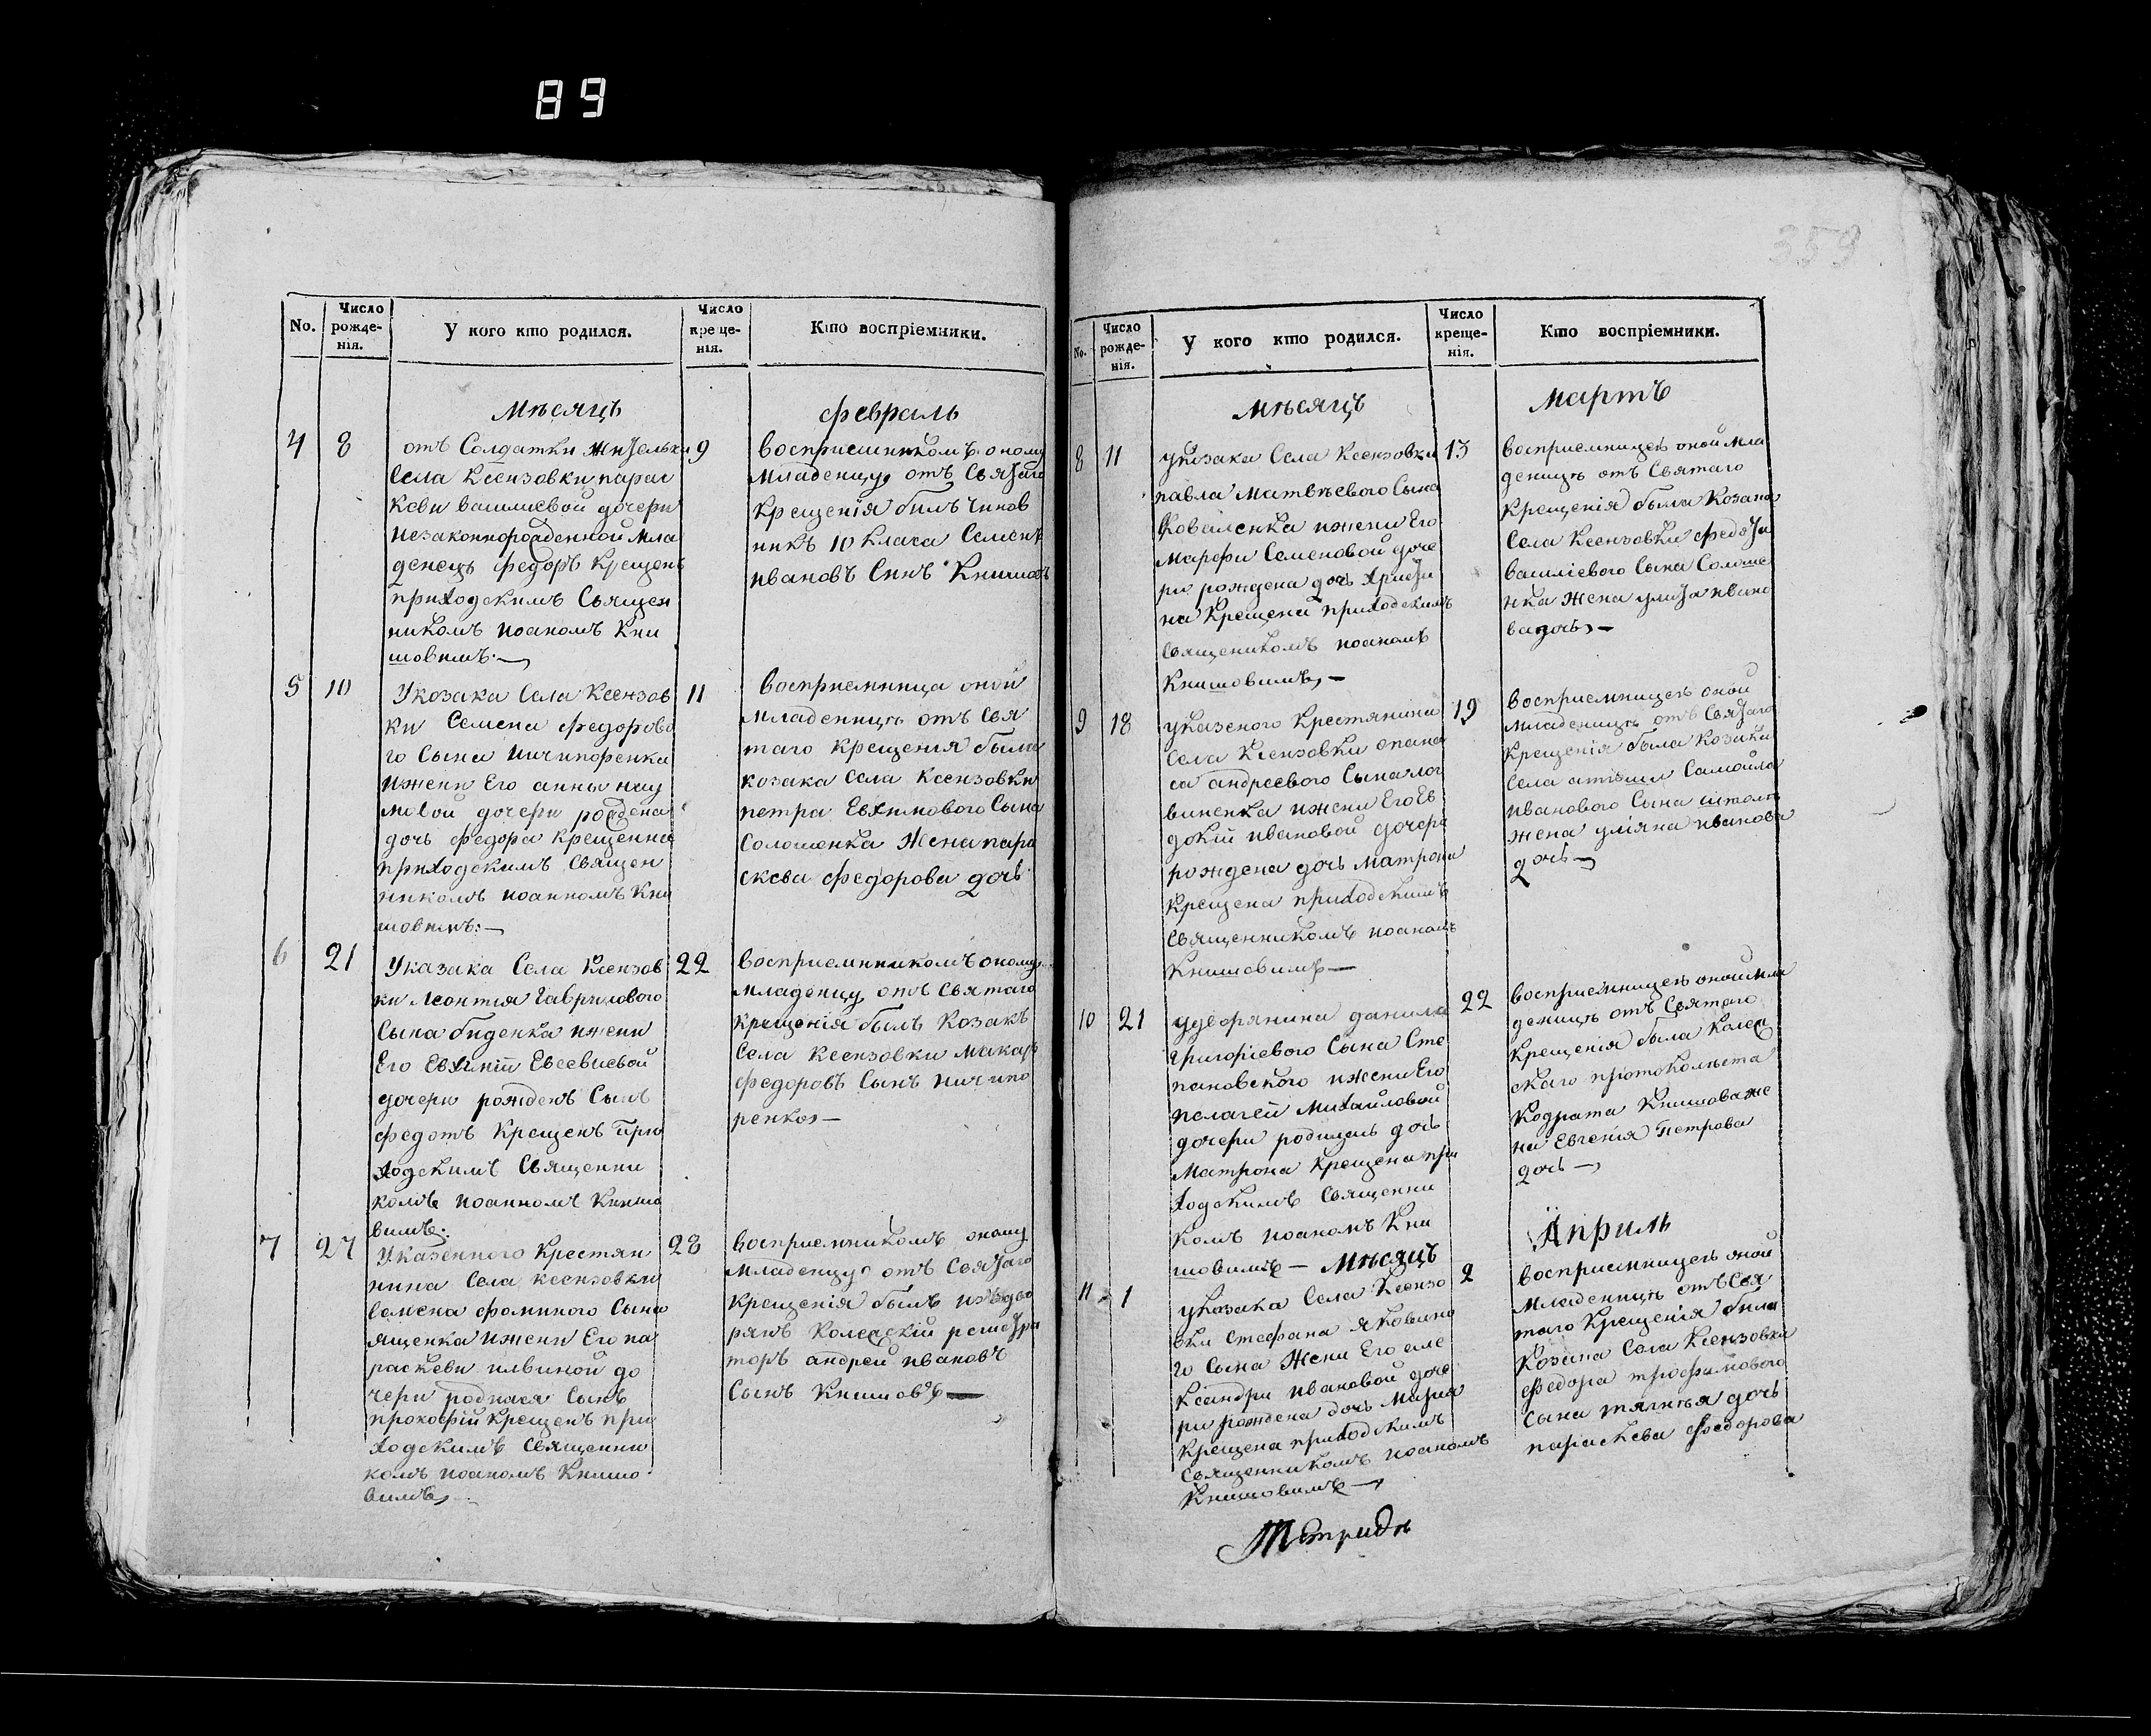 89
359
No.
Число рожде-нія.
У кого кто родился.
Число креще-нія.
Кто воспріемники.
Мѣсяцъ
февраль
4 8
отъ Солдатки жительки
Села Ксензовки парас
кеви василиевой дочери
незаконнорожденной мла
денецъ федоръ Крещенъ
приходскимъ Священ
никомъ иоаномъ Кни
шовимъ:—
9
восприемникомъ оному
младенцу отъ Святаго
Крещенія билъ чинов
никъ 10 класа Семенъ
ивановъ Синъ Книшовъ
5 10
У козака Села Ксензов
ки Семена федорово
го Сына ничипоренка
ижени Его анны нау
мовой дочери рождена
дочь федора крещенна
приходскимъ Священ
никомъ иоанномъ Кни
шовимъ:—
11
восприемница оной
младеницы отъ Свя
таго крещенія была
козака села Ксензовки
петра Евхимового Сына
Солошенка жена пара
скева федорова дочь
6 21
У казака Села Ксензов
ки Леонтия Гаврилового
Сына биденка ижени
Его Евхиній Евсевиевой
дочери рожденъ Сынъ
федотъ Крещенъ при
ходскимъ Священни
комъ иоанномъ Книшо
вимъ:
22
восприемникомъ оному
младенцу отъ Святаго
крещенія былъ Козакъ
Села Ксензовки макаръ
федоровъ Сынъ ничипо
ренко—
7 27
У казенного Крестян
нина Села ксензовки
Семена фоминого Сына
ященка ижени Его па
раскеви илвиной до
чери родился Сынъ
прокофій Крещенъ при
ходскимъ Священни
комъ иоаномъ Книшо
вимъ
28
восприемникомъ оному
младенцу отъ Святаго
крещенія былъ изъ дво
рянъ Колежскій регистра
торъ андрей ивановъ
Сынъ Книшовъ—
No.
Число рожде-нія.
У кого кто родился.
Число креще-нія.
Кто воспріемники.
мѣсяцъ
мартъ
8 11
у козака Села Ксензовки
павла Матвѣевого Сына
Коваленка ижени Его
марфи Семеновой доче
ри рождена дочь христи
на Крещена приходскимъ
Священикомъ иоаномъ
Книшовимъ—
13
восприемницею оной мла
деницѣ отъ Святаго
Крещенія была Козака
Села Ксензовки федота
василіевого Сына Солоше
нка жена улита ивано
ва дочь—
9 18
у казеного Крестянина
Села Ксензовки опана
са андреевого Сына лог
виненка ижени Его Ев
докій ивановой дочери
рождена дочь Матрона
Крещена приходскимъ
Священникомъ иоаномъ
Книшовимъ—
19
восприемницею оной
младеницѣ отъ Святаго
крещенія была Козака
Села Самойла
иванового Сына
жена уліяна иванова
дочь—
10 21
у дворянина данила
Григоріевого Сына Сте
пановского ижени Его
пелагеи Михайловой
дочери родилась дочь
Матрона крещена при
ходскимъ Священни
комъ иоаномъ Кни
шовимъ—
22
восприемницею оной мла
деницѣ отъ Святаго
крещенія была Колеж
скаго протоколиста
Кодрата Книшова же
на Евгенія Петрова
дочь—
Мѣсяцъ
Априль
11 1
у козака Села Ксензо
вки Стефана яковлево
го Сына жени Его але
ксандри ивановой доче
ри рождена дочь Мария
Крещена приходскимъ
Священникомъ иоаномъ
Книшовимъ—
2
восприемницею оной
младеницѣ отъ Свя
таго Крещенія била
Козака Села Ксензовки
федора трофимового
сына дочь
параскева федорова